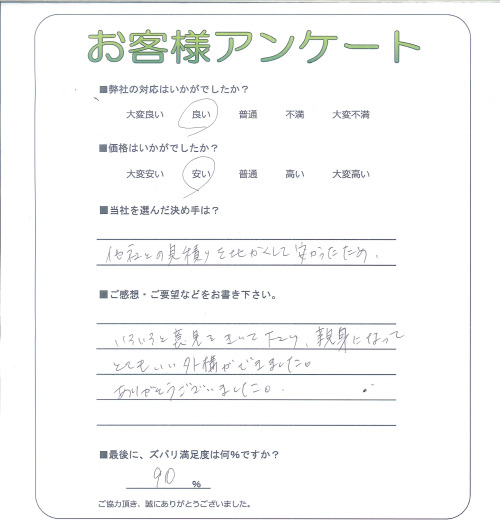 お客様アンケート
■弊社の対応はいかがでしたか？
大変良い 良い 普通 不満 大変不満
■価格はいかがでしたか？
大変安い 安い 普通 高い 大変高い
■当社を選んだ決め手は？
他社との見積りを比かくして安かったため。
■ご感想・ご要望などをお書き下さい。
いろいろと意見をきいて下さり、親身になって
とてもいい外構ができました。
ありがとうございました。
■最後に、ズバリ満足度は何％ですか？
90 %
ご協力頂き、誠にありがとうございました。